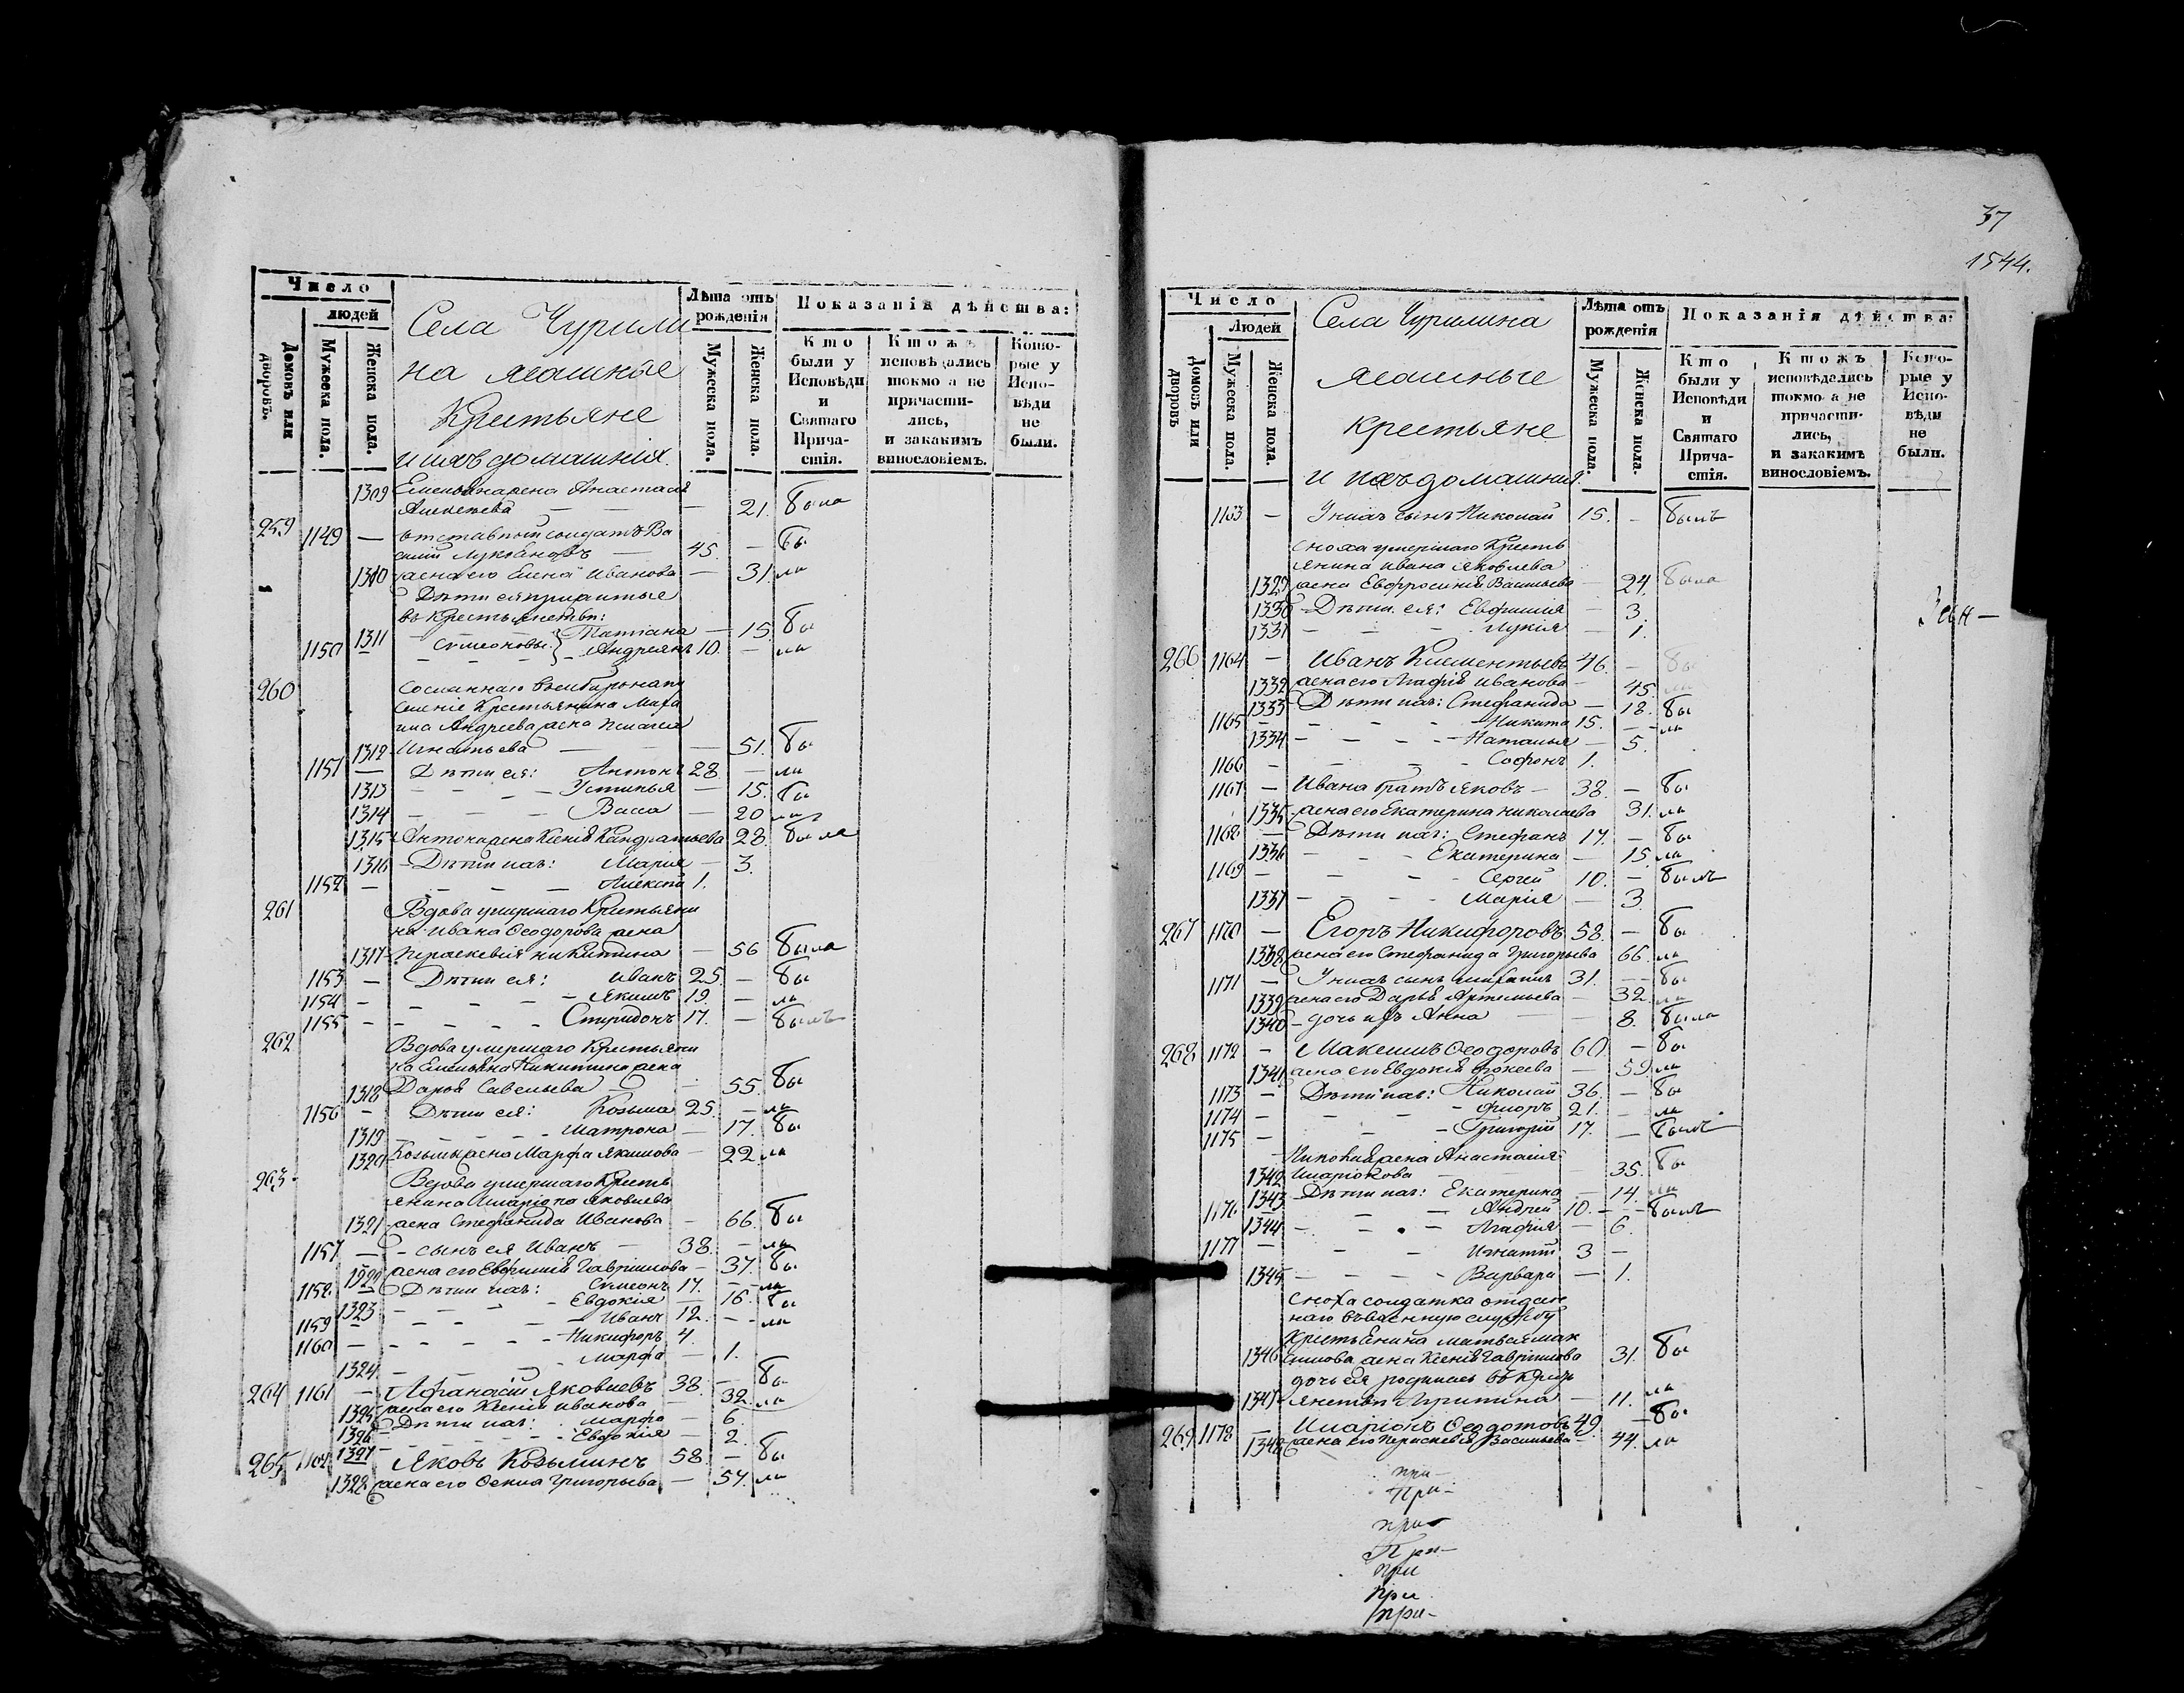 Число
людей
Домовъ или дворовъ.
Мужеска пола.
Женска пола.
Села Чурили
на ясашные
Крестьяне
и ихъ домашнія.
Лѣта отъ рожденія
Мужеска пола.
Женска пола.
Показанія дѣйства:
Кто были у Исповѣди и Святаго Прича-стія.
Ктожъ исповѣдались токмо а не причасти-лись, и закакимъ винословіемъ.
Кото-рые у Испо-вѣди не были.
1309 Емельяна жена Анастасія
Алексѣева — — — 21. была
259 1149 — отставный солдатъ Ва
силій Лукьяновъ — 45. — бы
1310 жена его Елена Иванова — 31. ли
Дѣти ея прижитые
въ крестьянствѣ:
1311 Симеоновы: Татіана — 15. бы
1150 — Андреянъ 10. — ли
260 Сосланнаго в сибирь на по
селеніе Крестьянина Макси
ма Андреева жена Пелагея
1312 Игнатьева — — — 51. бы
1151 — Дѣти ея: Антонъ 28. — ли
1313 — — — Устинья — 15. бы
1314 — — — Васса — 20 ли
1315 Антона жена Ксенія Кандратьева 28. была
1316 Дѣти ихъ: Марія — 3.
1152 — — — Алексѣй 1.
261 Вдова умершаго Крестьяни
на Ивана Ѳеодорова жена
1317 Параскевія Никитина — 56 была
1153 — Дѣти ея: Иванъ 25. — бы
1154 — — — Якимъ 19. — ли
1155 — — — Спиридонъ 17. — былъ
262 Вдова умершаго Крестьяни
на Емельяна Никитина жена
1318 Дарья Савельева — — 55. бы
1156 — Дѣти ея: Козьма 25. — ли
1319 — — — Матрона — 17. бы
1320 Козьмы жена Марфа Якимова — 22. ли
263. Вдова умершаго Кресть
янина Иларіона Яковлева
1321 жена Стефанида Иванова — 66. бы
1157 — — сынъ ея Иванъ — 38. — ли
1322 жена его Евфимія Гаврилова — 37. бы
1158. — Дѣти ихъ: Симеонъ 17. — ли
1323 — — — Евдокія — 16. бы
1159 — — — Иванъ 12. — ли
1160 — — — Никифоръ 4.
1324 — — — Марфа — 1.
264 1161 — Афанасій Яковлевъ 38. — бы
1325 жена его Ксенія Иванова — 32. ли
1326 Дѣти ихъ: Марфа — 6.
1327 — — — Евдокія — 2.
265 1162 — Яковъ Козьминъ 58. — бы
1328 жена его Ѳекла Григорьева — 57. ли
37
1544.
Число
Людей
Домовъ или дворовъ
Мужеска пола.
Женска пола.
Села Чурилина
ясашные
крестьяне
и ихъ домашнія.
Лѣта отъ рожденія
Мужеска пола.
Женска пола.
Показанія дѣйства:
Кто были у Исповѣди и Святаго Прича-стія.
Ктожъ исповѣдались токмо а не причасти-лись, и закакимъ винословіемъ.
Кото-рые у Испо-вѣди не были.
1163 — У нихъ сынъ Николай 15. — былъ
сноха умершаго Кресть
янина Ивана Яковлева
1329 жена Евфросинія Васильева — 24. была
1330 Дѣти ея: Евфимія — 3.
1331 — — — Лукія — 1.
266 1164 — Иванъ Климентьевъ 46. — бы
1332 жена его Агафія Иванова — 45. ли
1333 Дѣти ихъ: Стефанида — 18. бы
1165 — — — Никита 15. — ли
1334 — — — Наталья — 5.
1166 — — — Софонъ 1.
1167 — Ивана братъ Яковъ — 38. — бы
1335 жена его Екатерина Николаева 31. ли
1168 — Дѣти ихъ: Стефанъ 17. — бы
1336 — — — Екатерина — 15. ли
1169 — — — Сергей 10. — былъ
1337 — — — Марія — 3.
267 1170 — Егоръ Никифоровъ 58. — бы
1338 жена его Стефанида Григорьева 66. ли
1171 — У нихъ сынъ Михаилъ 31. — бы
1339 жена его Дарья Артемьева — 32. ли
1340 — дочь ихъ Анна — — 8. была
268 1172 — Максимъ Ѳеодоровъ 60 — бы
1341 жена его Евдокія Фокеева — 59. ли
1173 — Дѣти ихъ: Николай 36. — бы
1174 — — — Флоръ 21. — ли
1175 — — — Григорій 17. — былъ
Николая жена Анастасія
1342 Иларіонова — 35. бы
1343 Дѣти ихъ: Екатерина — 14. ли
1176 — — — Андрей 10. — былъ
1344 — — — Агафія — 6.
1177 — — — Игнатій 3 —
1345 — — — Варвара — 1.
сноха солдатка отдан
наго въ военную службу
Крестьянина Матвея Мак
1346 симова жена Ксенія Гаврилова 31. бы
дочь ея родилась въ крес
1347 янствѣ Агрипина — 11. ли
269 1178 — Иларіонъ Ѳеодотовъ 49. — бы
1348 жена его Параскевія Васильева — 44. ли
при —
при —
при
при —
при
при
при —